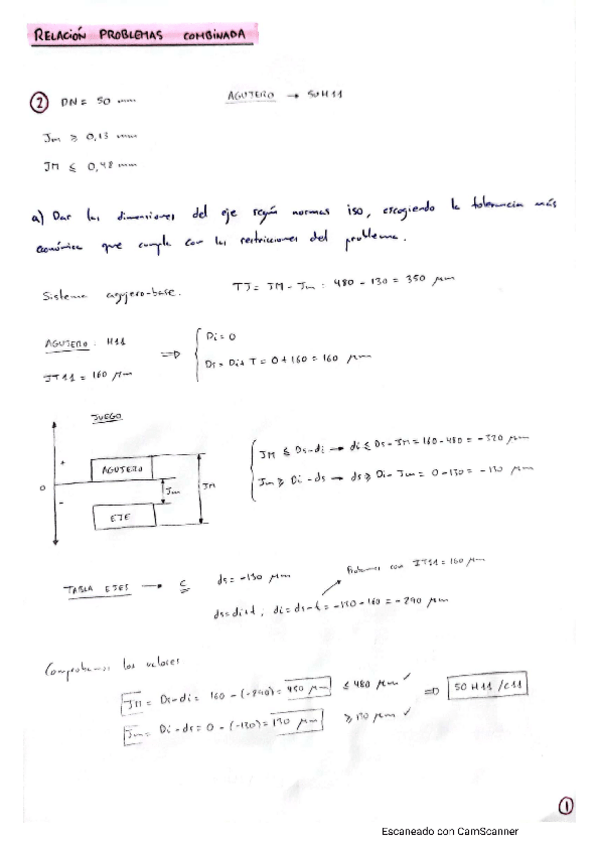 RELACIÓN PROBLEMAS COMBINADA
② DN = 50 mm AGUJERO → 50H11
Jm ≥ 0,13 mm
JM ≤ 0,48 mm
a) Dar las dimensiones del eje según normas iso, escogiendo la tolerancia más
económica que cumpla con las restricciones del problema.
Sistema agujero-base. TJ = JM - Jm : 480 - 130 = 350 µm
AGUJERO : H11
IT11 = 160 µm
Di = 0
Ds = Di + T = 0 + 160 = 160 µm
JUEGO
+
0
-
AGUJERO
EJE
Jm
JM
JM ≤ Ds - di → di ≤ Ds - JM = 160 - 480 = -320 µm
Jm ≥ Di - ds → ds ≥ Di - Jm = 0 - 130 = -130 µm
TABLA EJES → c ds = -130 µm
Probamos con IT11 = 160 µm
ds = di + t , di = ds - t = -130 - 160 = -290 µm
Comprobamos los valores
JM = Ds - di = 160 - (-290) = 450 µm ≤ 480 µm ✓
Jm = Di - ds = 0 - (-130) = 130 µm ≥ 130 µm ✓
⇒ 50 H11 / c11
①
Escaneado con CamScanner